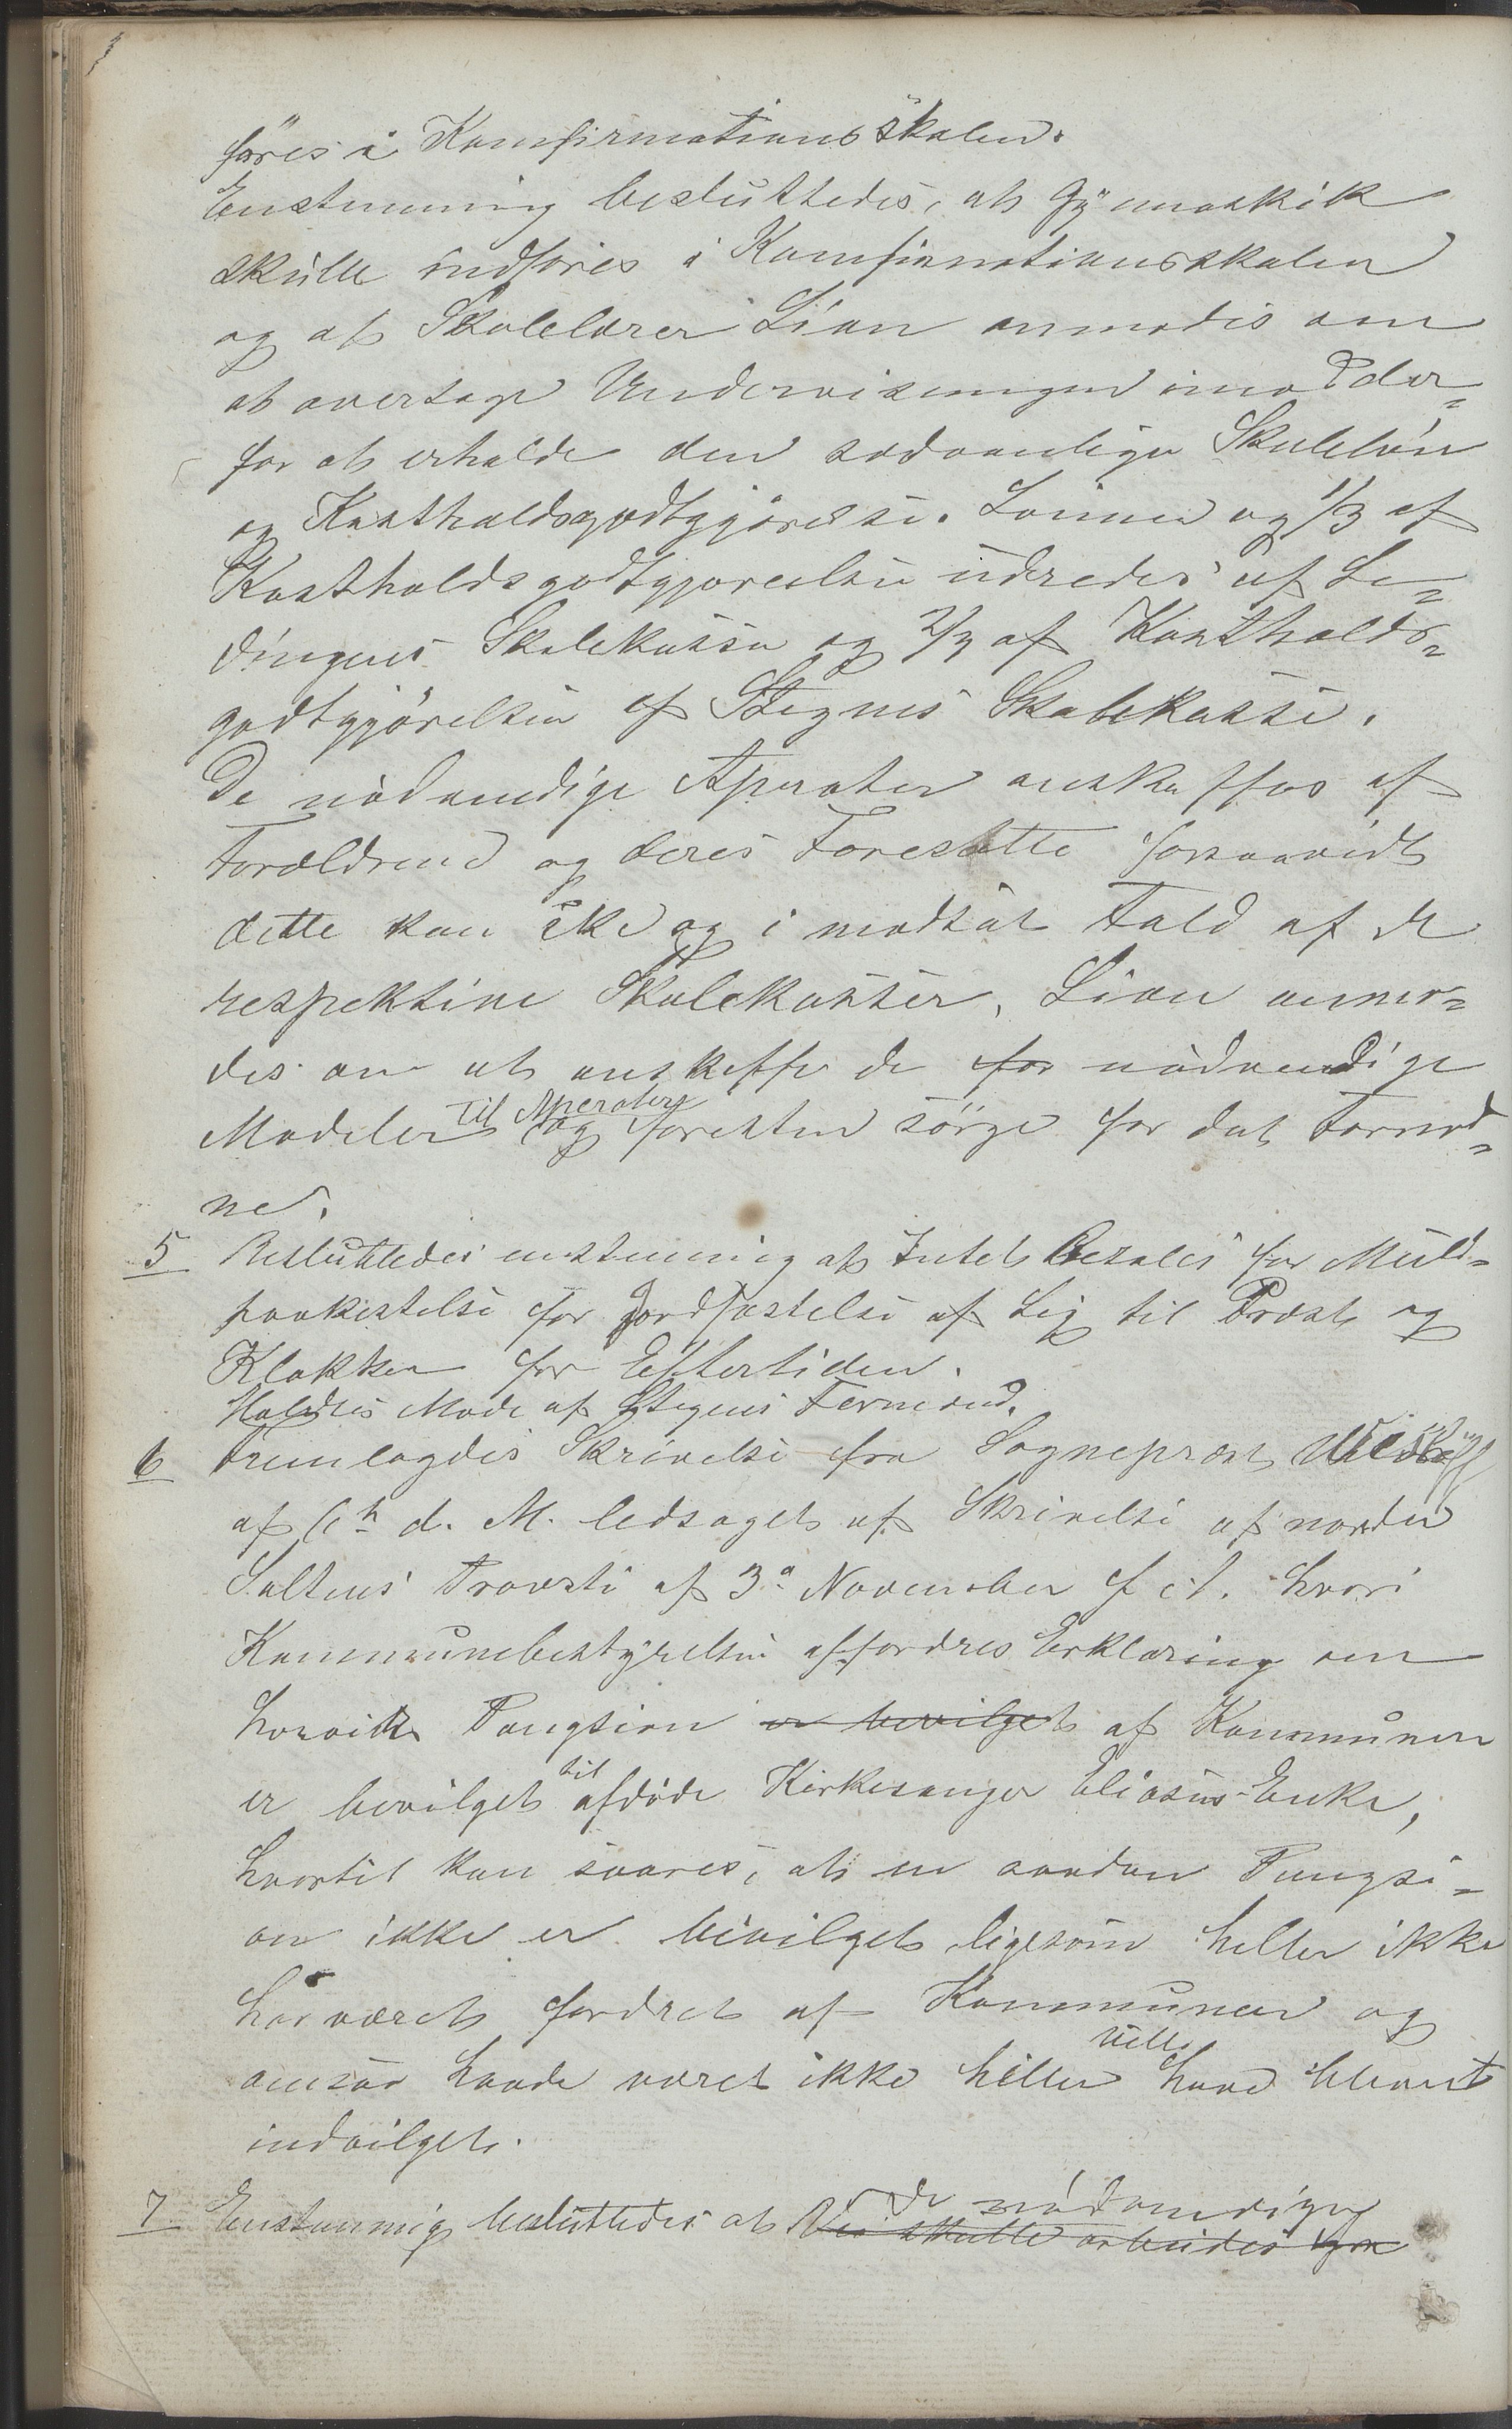 føres i Konfirmationsskolen.
Enstemmig besluttedes, at Gymnastik
skulle indføres i Konfirmationsskolen
og at Skolelærer Lian anmodes om
at overtage Undervisningen imod der-
for at erholde den sedvanlige Skoleløn
og Kostholdsgodtgjørelse. Lønnen og 1/3 af
Kostholdsgodtgjørelsen udredes af Le-
dingens Skolekasse og 2/3 af Kostholds-
godtgjørelsen af Stegens Skolekasse.
De nødvendige Aperater anskaffes af
Forældrene og deres Foresatte forsaavidt
dette kan ske og i modsat Fald af de
respektive Skolekasser. Lian anmo-
des om at anskaffe de for nødvendige
Modeler til Aperater og foresten sørge for det Fornød-
ne.
5 Besluttedes enstemmig at Intet betales for Muld-
paakastelse for Jordfæstelse af Lig til Præst og
Klokker for Eftertiden.
Holdtes Møde af Stegens Formænd.
6 Fremlagdes Skrivelse fra Sogneprest
af 6te d. M. ledsaget af Skrivelse af nordre
Saltens Provsti af 3die November f. A. hvori
Kommunebestyrelsen affordres Erklæring om
hvorvidt Pengsion er bevilget af Kommunen
er bevilget til afdøde Kirkesanger Eliasens Enke,
hvortil kan svares, at en saadan Pengsi-
on ikke er bevilget ligesom heller ikke
har været fordret af Kommunen og
om saa havde været ikke heller ville have blevet
indvilget.
7 Enstemmig besluttedes at de nødvendige
Vei skulle arbeides